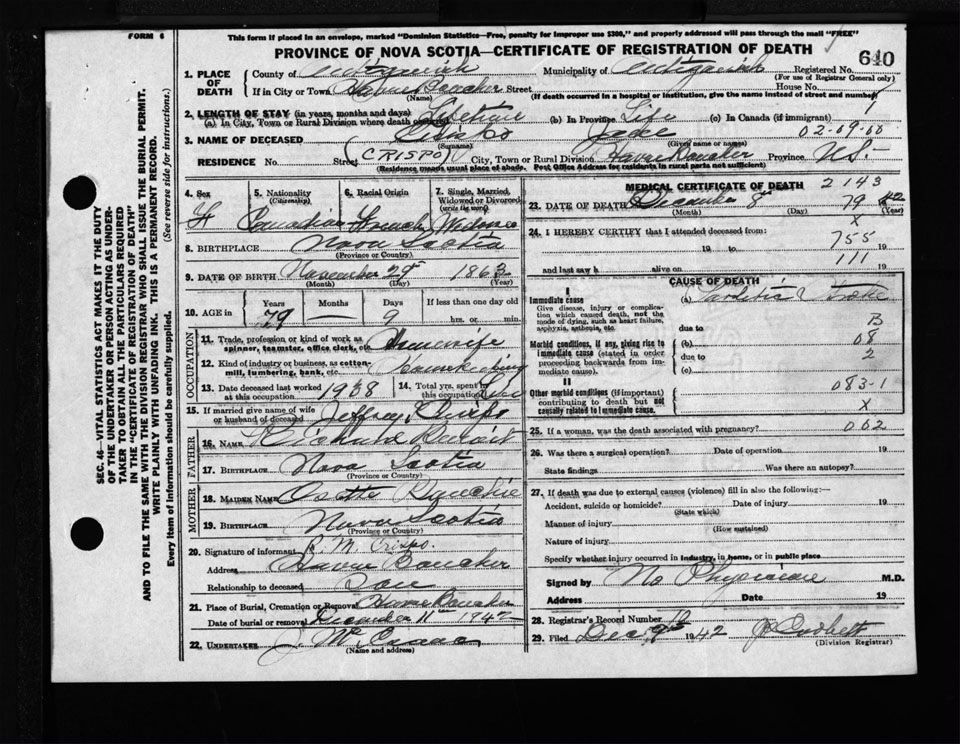 FORM 6
This form if placed in an envelope, marked "Dominion Statistics—Free, penalty for improper use $300," and properly addressed will pass through the mail "FREE"
PROVINCE OF NOVA SCOTIA—CERTIFICATE OF REGISTRATION OF DEATH
640
SEC. 46—VITAL STATISTICS ACT MAKES IT THE DUTY
OF THE UNDERTAKER OR PERSON ACTING AS UNDER-
TAKER TO OBTAIN ALL THE PARTICULARS REQUIRED
IN THE "CERTIFICATE OF REGISTRATION OF DEATH"
AND TO FILE THE SAME WITH THE DIVISION REGISTRAR WHO SHALL ISSUE THE BURIAL PERMIT.
WRITE PLAINLY WITH UNFADING INK. THIS IS A PERMANENT RECORD.
Every item of Information should be carefully supplied. (See reverse side for instructions.)
1. PLACE OF DEATH
County of Antigonish Municipality of Antigonish Registered No.
(For use of Registrar General only)
If in City or Town Havre Boucher Street House No.
(Name) (If death occurred in a hospital or institution, give the name instead of street and number)
2. LENGTH OF STAY (in years, months and days)
(a) In City, Town or Rural Division where death occurred Lifetime (b) In Province Life (c) In Canada (if immigrant) 1
3. NAME OF DECEASED Crispo 02-09-00
(Surname) (Given name or names)
RESIDENCE No. Street (CRISPO) City, Town or Rural Division Havre Boucher Province N.S.
(Residence means usual place of abode. Post Office Address for residents in rural parts not sufficient)
4. Sex 5. Nationality (Citizenship) 6. Racial Origin 7. Single, Married, Widowed or Divorced (write the word)
F Canadian French Widowed
8. BIRTHPLACE Nova Scotia
(Province or Country)
9. DATE OF BIRTH November 29 1863
(Month) (Day) (Year)
10. AGE in Years Months Days If less than one day old
79 9 hrs. or min.
OCCUPATION
11. Trade, profession or kind of work as spinner, teamster, office clerk, etc. Housewife
12. Kind of industry or business, as cotton-mill, lumbering, bank, etc. Housekeeping
13. Date deceased last worked at this occupation 1938 14. Total yrs. spent in this occupation Life
15. If married give name of wife or husband of deceased Jeffrey Crispo
FATHER
16. NAME Richard Benoit
17. BIRTHPLACE Nova Scotia
(Province or Country)
MOTHER
18. MAIDEN NAME
19. BIRTHPLACE Nova Scotia
(Province or Country)
20. Signature of informant R. M. Crispo.
Address Havre Boucher
Relationship to deceased Son
21. Place of Burial, Cremation or Removal Havre Boucher
Date of burial or removal December 11th 1942
22. UNDERTAKER
(Name and address)
MEDICAL CERTIFICATE OF DEATH 2143
23. DATE OF DEATH December 8 79 1942
(Month) (Day) (Year)
X
24. I HEREBY CERTIFY that I attended deceased from:
755
19 to 19
111
and last saw h alive on 19
CAUSE OF DEATH
I
Immediate cause
Give disease, injury or complication which caused death, not the mode of dying, such as heart failure, asphyxia, asthenia, etc.
(a)
due to B
Morbid conditions, if any, giving rise to immediate cause (stated in order proceeding backwards from immediate cause).
(b) 08
due to 2
(c)
II
Other morbid conditions (if important) contributing to death but not causally related to immediate cause.
083-1
X
25. If a woman, was the death associated with pregnancy? 002
26. Was there a surgical operation? Date of operation 19
State findings Was there an autopsy?
27. If death was due to external causes (violence) fill in also the following:—
Accident, suicide or homicide? Date of injury 19
(State which)
Manner of injury
(How sustained)
Nature of injury
Specify whether injury occurred in industry, in home, or in public place
Signed by No Physician M.D.
Address Date 19
28. Registrar's Record Number
29. Filed Dec 9th 1942 J Corbett
(Division Registrar)